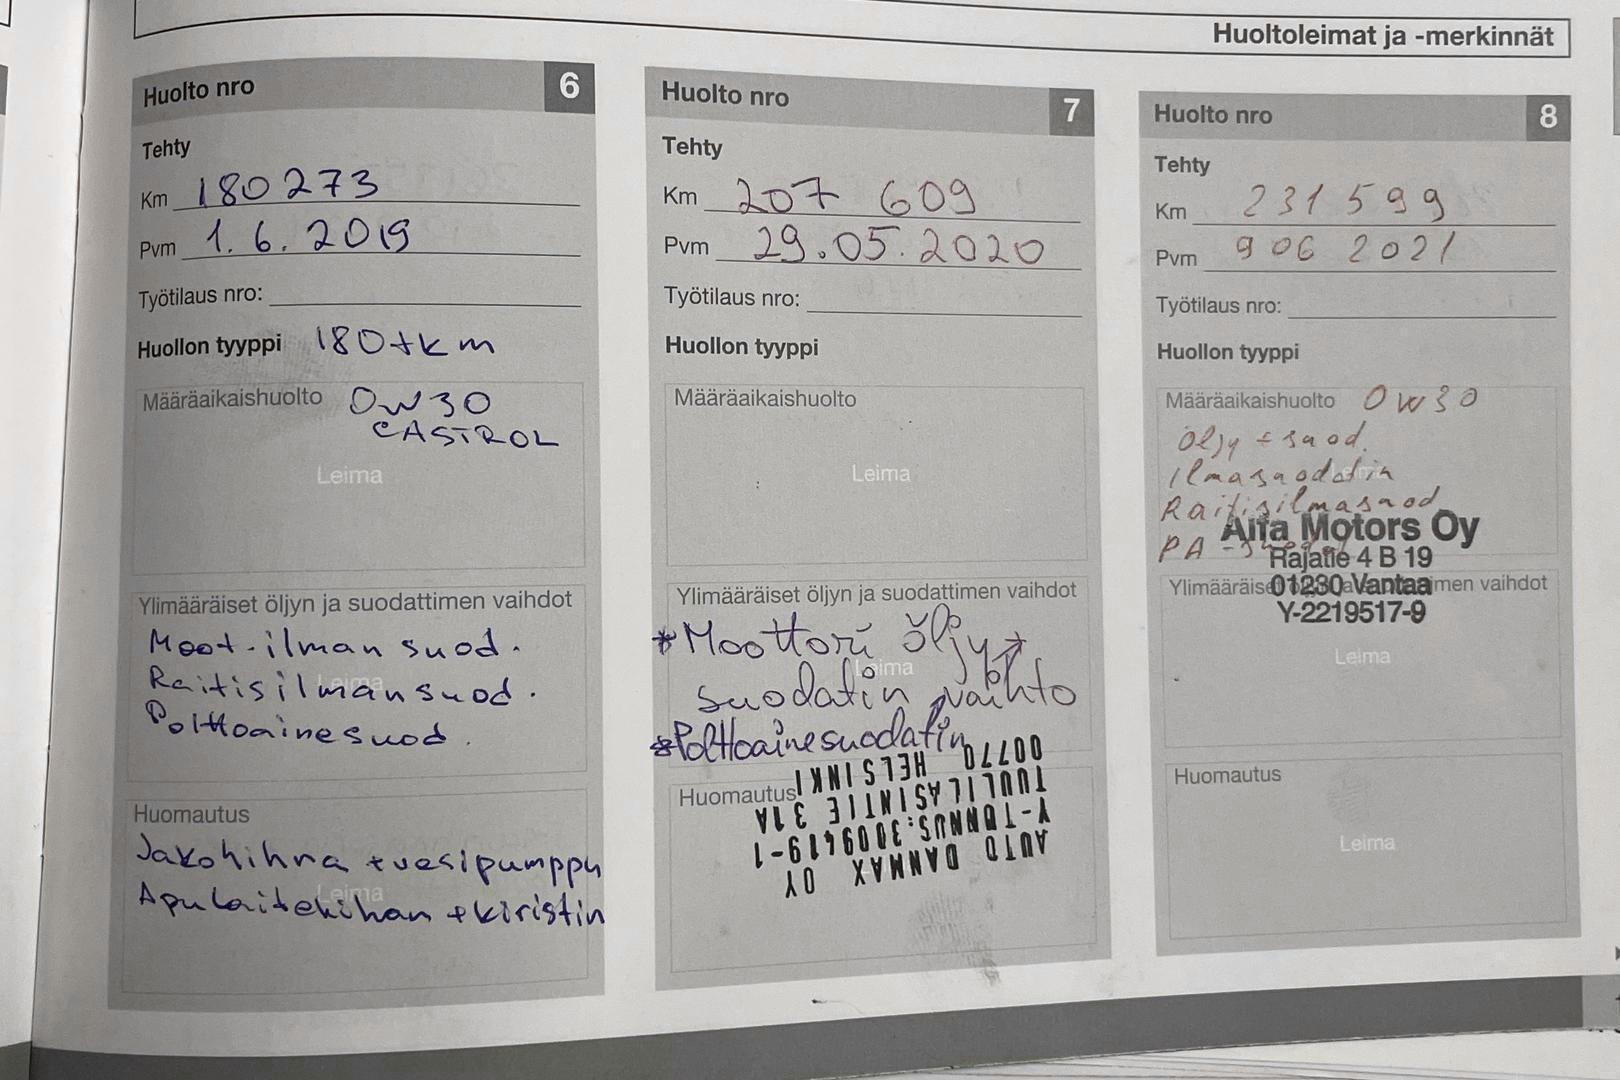 Huoltoleimat ja -merkinnät
Huolto nro 6
Tehty
Km 180273
Pvm 1.6.2019
Työtilaus nro:
Huollon tyyppi 180tkm
Määräaikaishuolto 0W30
CASTROL
Leima
Ylimääräiset öljyn ja suodattimen vaihdot
Moot.ilman suod.
Raitisilmansuod.
Leima
Polttoainesuod.
Huomautus
Jakohihna + vesipumppu
Leima
Apulaitehihan + kiristin
Huolto nro 7
Tehty
Km 207 609
Pvm 29.05.2020
Työtilaus nro:
Huollon tyyppi
Määräaikaishuolto
Leima
Ylimääräiset öljyn ja suodattimen vaihdot
* Moottori öljy +
Leima
suodatin vaihto
* Polttoainesuodatin
Huomautus
AUTO DANMAX OY
Y-TUNNUS:3009419-1
TUULILASINTIE 31A
00770 HELSINKI
Huolto nro 8
Tehty
Km 231 599
Pvm 9 06 2021
Työtilaus nro:
Huollon tyyppi
Määräaikaishuolto 0W30
Öljy + suod.
Ilmasuodatin
Raitisilmasuod
PA -
Alfa Motors Oy
Rajatie 4 B 19
01230 Vantaa
Y-2219517-9
Ylimääräiset öljyn ja suodattimen vaihdot
Leima
Huomautus
Leima